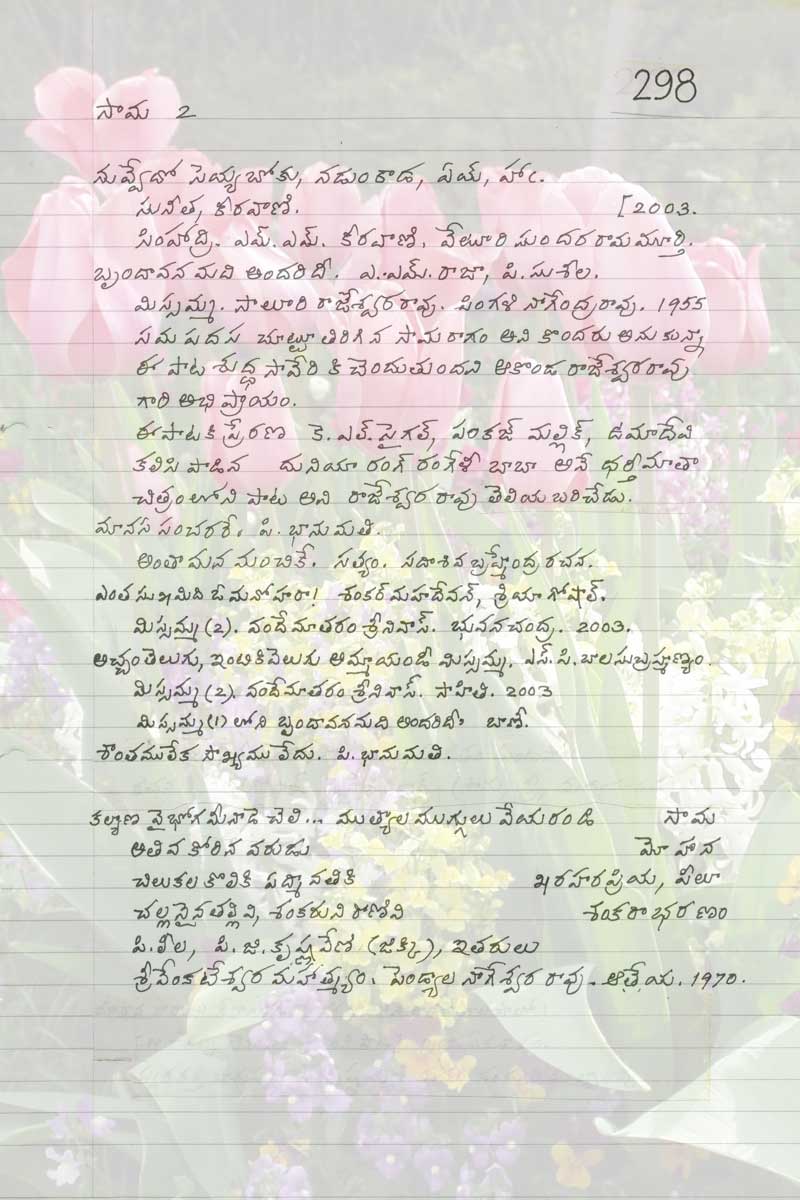 298
సామ 2
నువ్వేదో సెయ్యబోకు, నడుంకాడ, ఏయ్, హాఁ.
సునీత, కీరవాణి. [2003.
సింహాద్రి. ఎమ్.ఎమ్. కీరవాణి. వేటూరి సుందరరామమూర్తి.
బృందావనమది అందరిదీ. ఎ.ఎమ్.రాజా, పి.సుశీల.
మిస్సమ్మ. సాలూరి రాజేశ్వరరావు. పింగళి నాగేంద్రరావు. 1955
సమపదస చుట్టూ తిరిగిన సామరాగం అని కొందరు అనుకున్నా
ఈ పాట శుద్ధ సావేరి కి చెందుతుందని ఆకొండ రాజేశ్వరరావు
గారి అభిప్రాయం.
ఈపాటకి ప్రేరణ కె.ఎల్.సైగల్, పంకజ్ మల్లిక్, ఉమాదేవి
కలిసి పాడిన దునియా రంగ్ రంగేళీ బాబా అనే ధర్తీమాతా
చిత్రంలోని పాట అని రాజేశ్వరరావు తెలియబరిచేడు.
మానస సంచరరే. పి.భానుమతి.
అంతా మన మంచికే. సత్యం. సదాశివ బ్రహ్మేంద్ర రచన.
ఎంత సుఖమిది ఓ మనోహరా! శంకర్ మహదేవన్, శ్రియా గోషాల్.
మిస్సమ్మ (2). వందేమాతరం శ్రీనివాస్. భువనచంద్ర. 2003.
అచ్చం తెలుగు, ఇంటికి వెలుగు అమ్మాయండీ మిస్సమ్మ. ఎస్.పి.బాలసుబ్రహ్మణ్యం.
మిస్సమ్మ (2). వందేమాతరం శ్రీనివాస్. సాహితి. 2003
మిస్సమ్మ (1) లోని బృందావనమది అందరిదీ బాణీ.
శాంతములేక సౌఖ్యములేదు. పి.భానుమతి.
కల్యాణ వైభోగమీనాడె చెలి... ముత్యాల ముగ్గులు వేయరండి సామ
అతివ కోరిన వరుడు మోహన
చిలుకల కొలికి పద్మావతికి ఖరహరప్రియ, పీలూ
చల్లనైన తల్లివి, శంకరుని రాణివి శంకరాభరణం
పి.లీల, పి.జి.కృష్ణవేణి (జిక్కి), ఇతరులు
శ్రీవేంకటేశ్వర మహాత్మ్యం. పెండ్యాల నాగేశ్వర రావు. ఆత్రేయ. 1970.